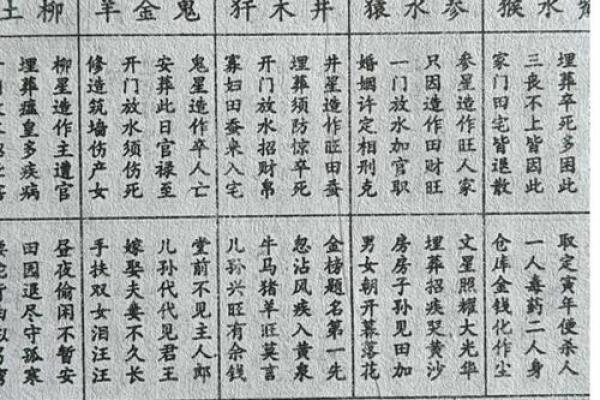 水猴
参水猿
井木犴
鬼金羊
柳土
埋葬卒死多困此
取定寅年便杀人
三丧不上皆因此
一人毒药二人身
家门田宅皆退散
仓库金钱化作尘
参星造作旺人家
文星照耀大光华
只因造作田财旺
埋葬招疾哭黄沙
一门放水加官职
房房子孙见田加
婚姻许定相刑克
男女朝开暮落花
井星造作旺田蚕
金榜题名第一先
埋葬须防惊卒死
忽沾风疾入黄泉
开门放水招财帛
牛马猪羊旺莫言
寡妇田蚕来入宅
儿孙兴旺有余钱
鬼星造作卒人亡
堂前不见主人郎
安葬此日官禄至
儿孙代代见君王
开门放水须伤死
嫁娶夫妻不久长
修造筑墙伤产女
手扶双女泪汪汪
柳星造作主遭官
昼夜偷闲不暂安
埋葬瘟皇多疾病
田园退尽守孤寒